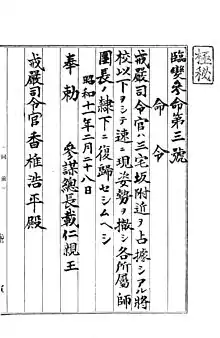 極秘
臨變參命第三號
命令
戒嚴司令官ハ三宅坂附近ヲ占據シアル將
校以下ヲシテ速ニ現姿勢ヲ撤シ各所屬師
團長ノ隷下ニ復歸セシムヘシ
奉勅 參謀總長載仁親王
昭和十一年二月二十八日
戒嚴司令官香椎浩平殿